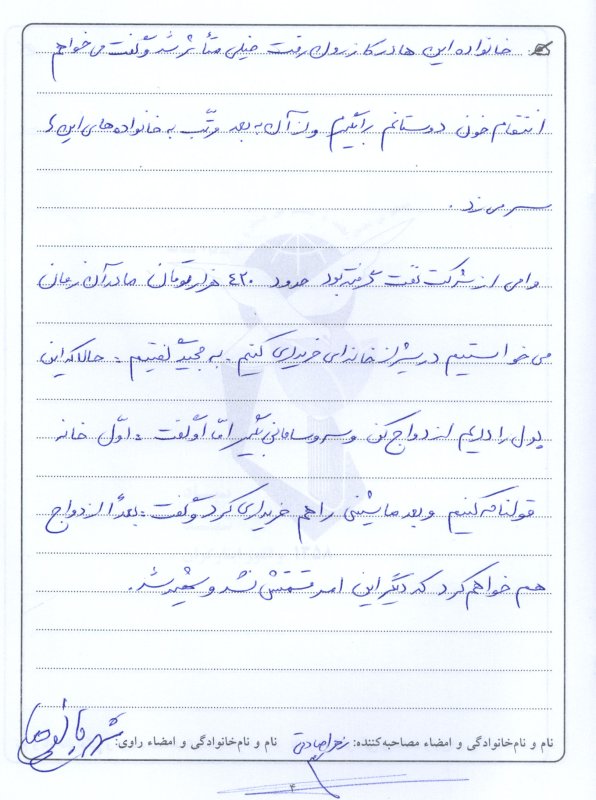 خانواده این ها در کازرون رفت خیلی متأثر شد و گفت می خواهم
انتقام خون دوستانم را بگیرم و از آن به بعد مرتّب به خانواده های این ها
سر می زد.
وامی از شرکت نفت گرفته بود حدود ۴۲۰ هزار تومان ما در آن زمان
می خواستیم در شیراز خانه ای خریداری کنیم. به مجید گفتیم: حالا که این
پول را داریم ازدواج کن و سر و سامانی بگیر امّا او گفت: اوّل خانه
قولنامه کنیم و بعد ماشینی را هم خریداری کرد و گفت: بعداً ازدواج
هم خواهم کرد که دیگر این امر قسمتش نشد و شهید شد.
نام و نام‌خانوادگی و امضاء مصاحبه‌کننده: زهرا صادقی نام و نام‌خانوادگی و امضاء راوی: شهربانو
۴